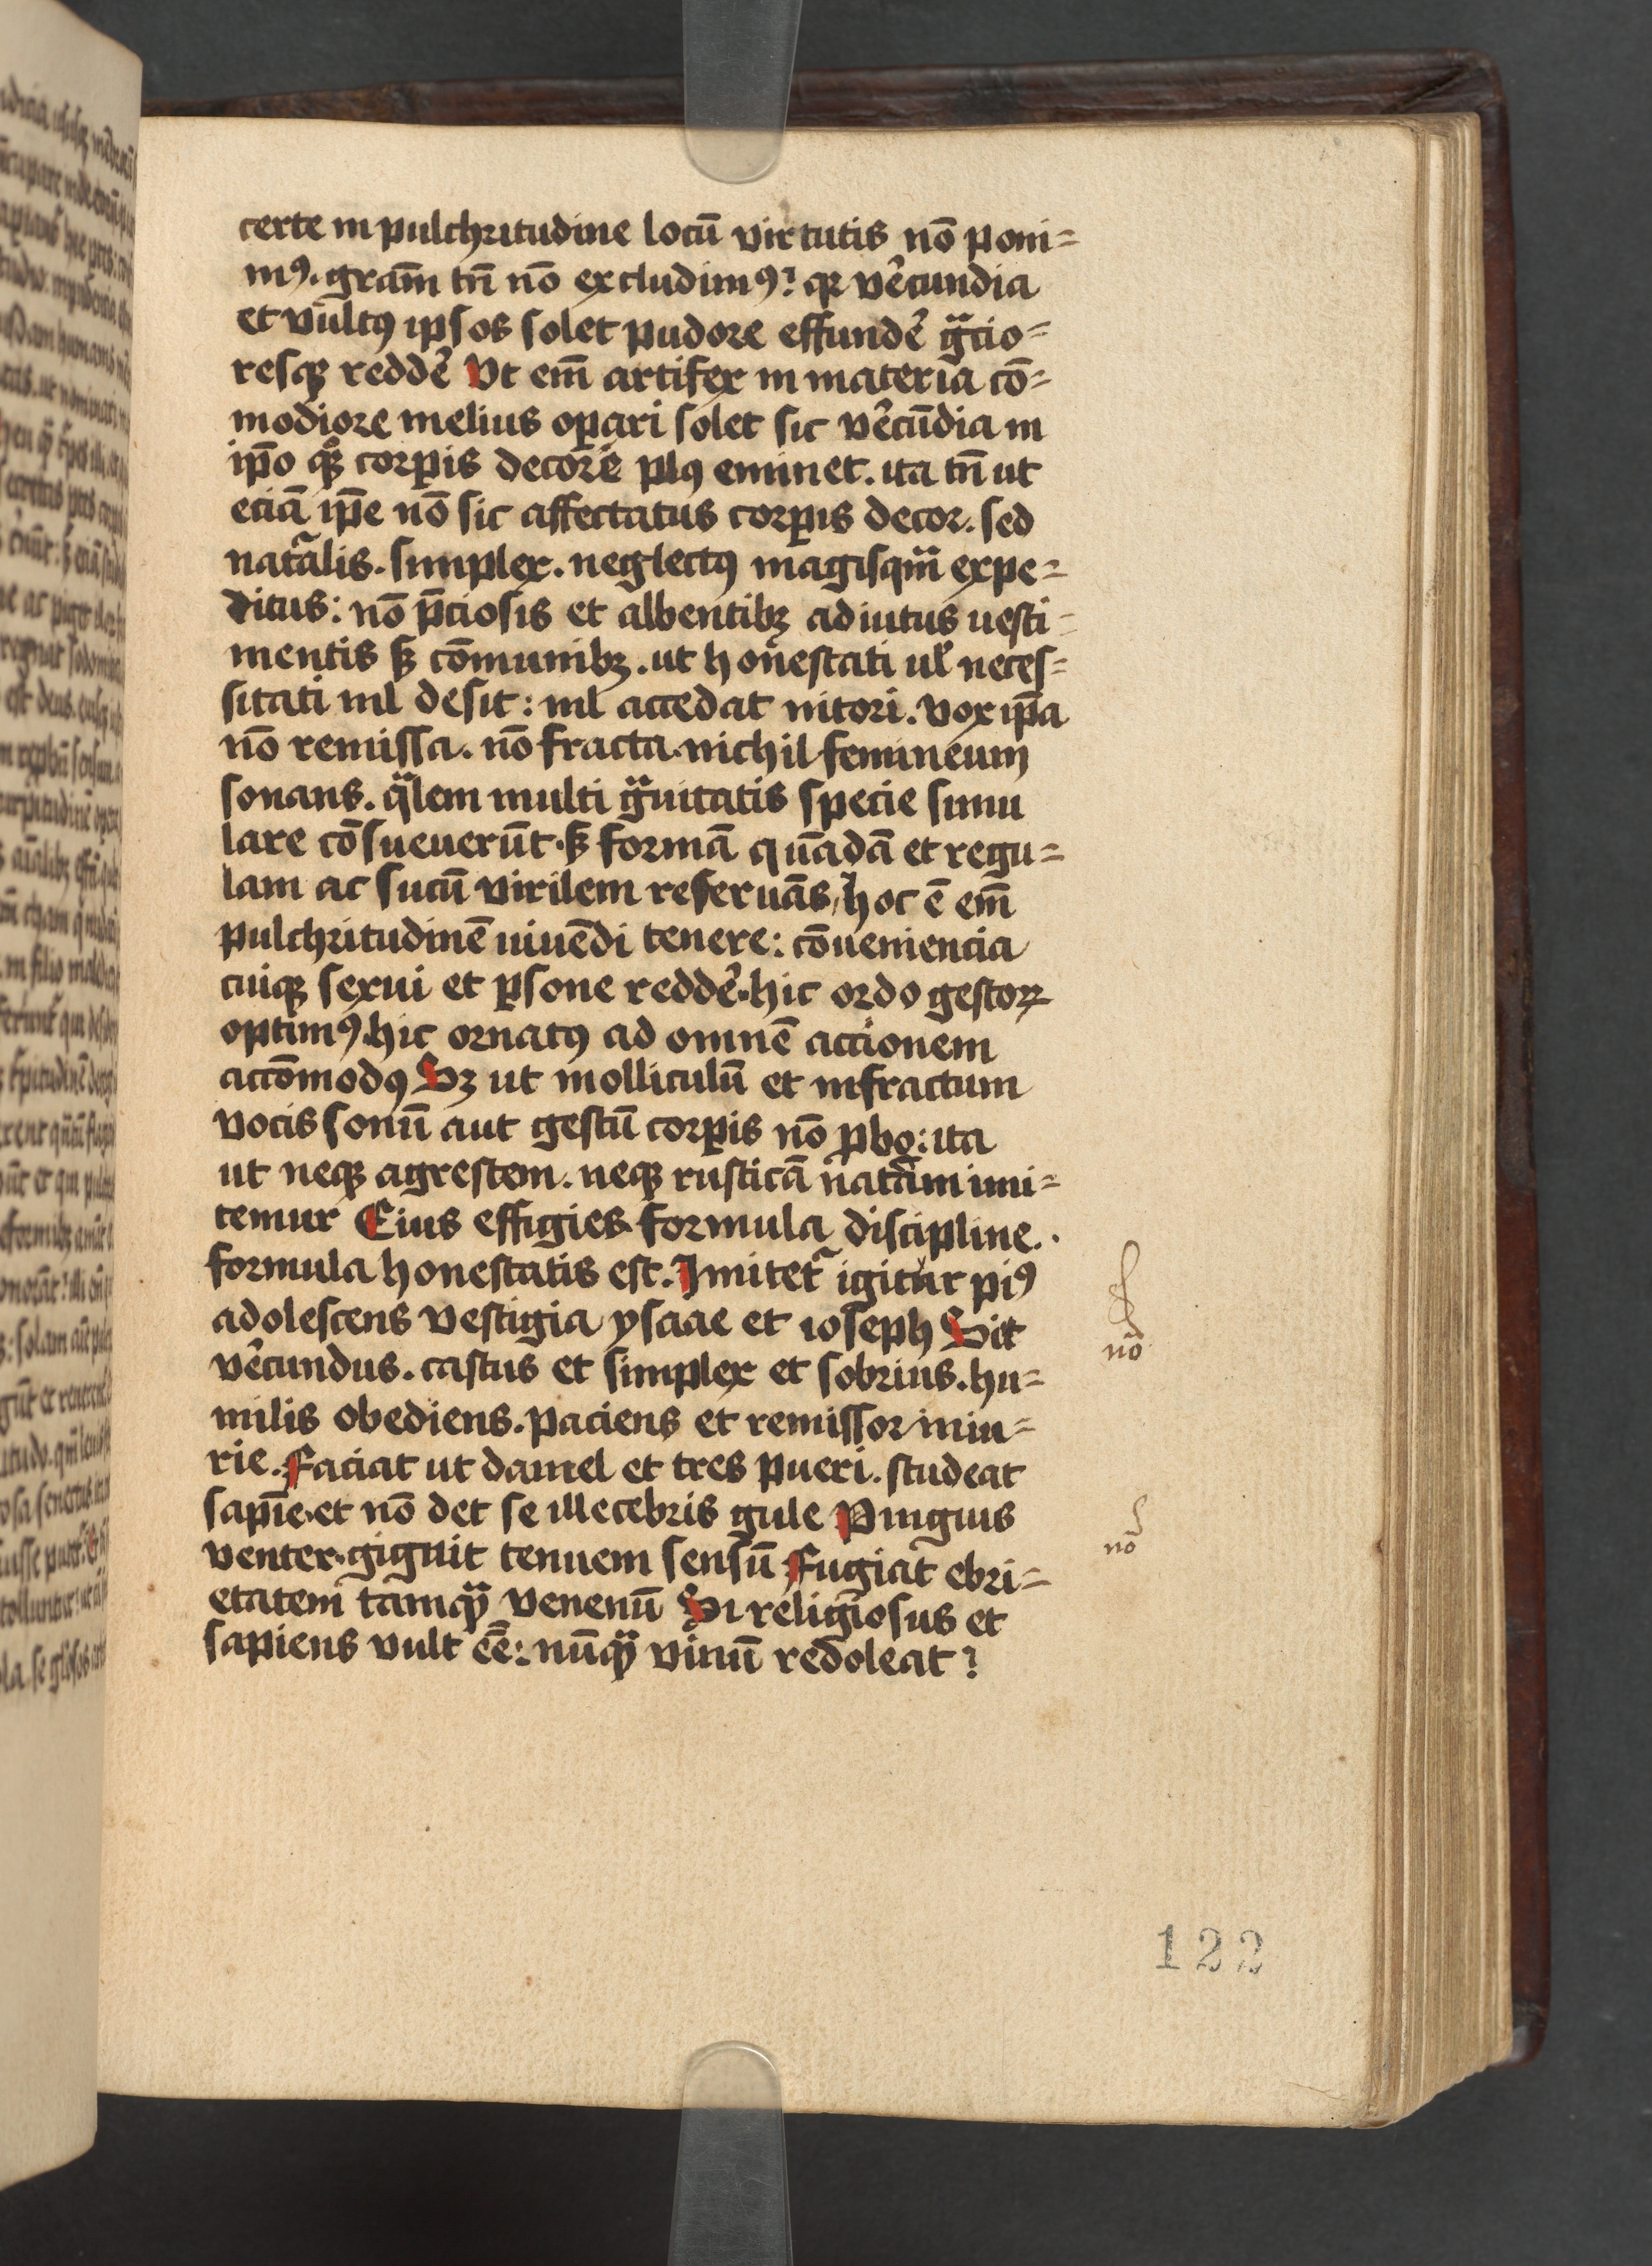 certe in pulchritudine locū virtutis nō poni=
mꝰ. grām tn̄ nō excludimꝰ? qꝛ vẽcundia
et vultꝰ ipsos solet pudore effundẽ gᷓcio=
resqꝫ reddẽ Vt em̄ artifex in materia cō=
modiore melius oꝑari solet sic vẽcūdia in
ip̄o qꝫ corꝑis decore plꝰ eminet. ita tn̄ ut
eciā ip̄e nō sic affectatus corꝑis decor. sed
natᷓalis. simplex. neglectꝰ magisqᷓm expe=
ditus: nō p̄ciosis et albentibꝫ adiutus uesti=
mentis sꝫ cōmunibꝫ. ut honestati ul̓ neces=
sitati nil desit: nil accedat nitori. vox ip̄a
nō remissa. nō fracta. nichil femineum
sonans. qᷓlem multi gᷓuitatis specie simu
lare cōsueuerūt. sꝫ formā quādā et regu=
lam ac sucū virilem reseruās, hoc ē em̄
pulchritudinē uiuēdi tenere: cōueniencia
cuiqꝫ sexui et ꝑsone reddẽ. hic ordo gestoꝝ
optimꝰ. hic ornatꝰ ad omnē accionem
accōmodꝰ Sꝫ ut molliculū et infractum
vocis sonū aut gestū corꝑis nō ꝓbo: ita
ut neqꝫ agrestem. neqꝫ rusticā natᷓam imi=
temur Eius effigies. formula discipline..
formula honestatis est. Imitetᷓ igitur piꝰ
adolescens vestigia ysaae et ioseph Sit
vẽcundus. castus et simplex et sobrius. hu=
milis obediens. paciens et remissor iniu=
rie. Faciat ut daniel et tres pueri. studeat
sapīe. et nō det se illecebris gule Pinguis
venter. gignit tenuem sensū Fugiat ebri=
etatem tamqᷓ venenū Si religiosus et
sapiens vult eē: nūqᷓ vinū redoleat?
nō
nō
122